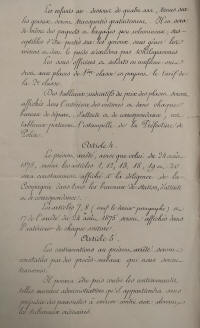 Les enfants au dessous de quatre ans, tenus sur
les genoux, seront transportés gratuitement. Il en sera
de même des paquets et bagages peu volumineux, sus-
ceptibles d'être portés sur les genoux, sans gêner les
voisins et dont le poids n'excèdera pas 10 kilogrammes.
Les sous officiers et soldats en uniforme ont
droit aux places de 1ère classe en payant le tarif de
la 2e classe.
Des tableaux indicatifs du prix des places seront
affichés dans l'intérieur des voitures et dans chaque
bureau de départ, d'attente et de correspondance; ces
tableaux porteront l'estampille de la Préfecture de
Police.
Article 4.
Le présent arrêté, ainsi que celui du 24 août
1875, moins les articles 1, 12, 13, 18, et 20
sera constamment affiché à la diligence de la
Compagnie dans tous les bureaux de station, d'attente
et de correspondance.
Les articles 7, 8 (sauf le dernier paragraphe) et
17 de l'arrêté du 24 août 1875 seront affichés dans
l'intérieur de chaque voiture.
Article 5.
Les contraventions au présent arrêté seront
constatées par des procès-verbaux qui nous seront
transmis.
Il pourra être pris contre les contrevenants
telles mesures administratives qu'il appartiendra, sans
préjudice des poursuites à exercer contre eux devant
les tribunaux